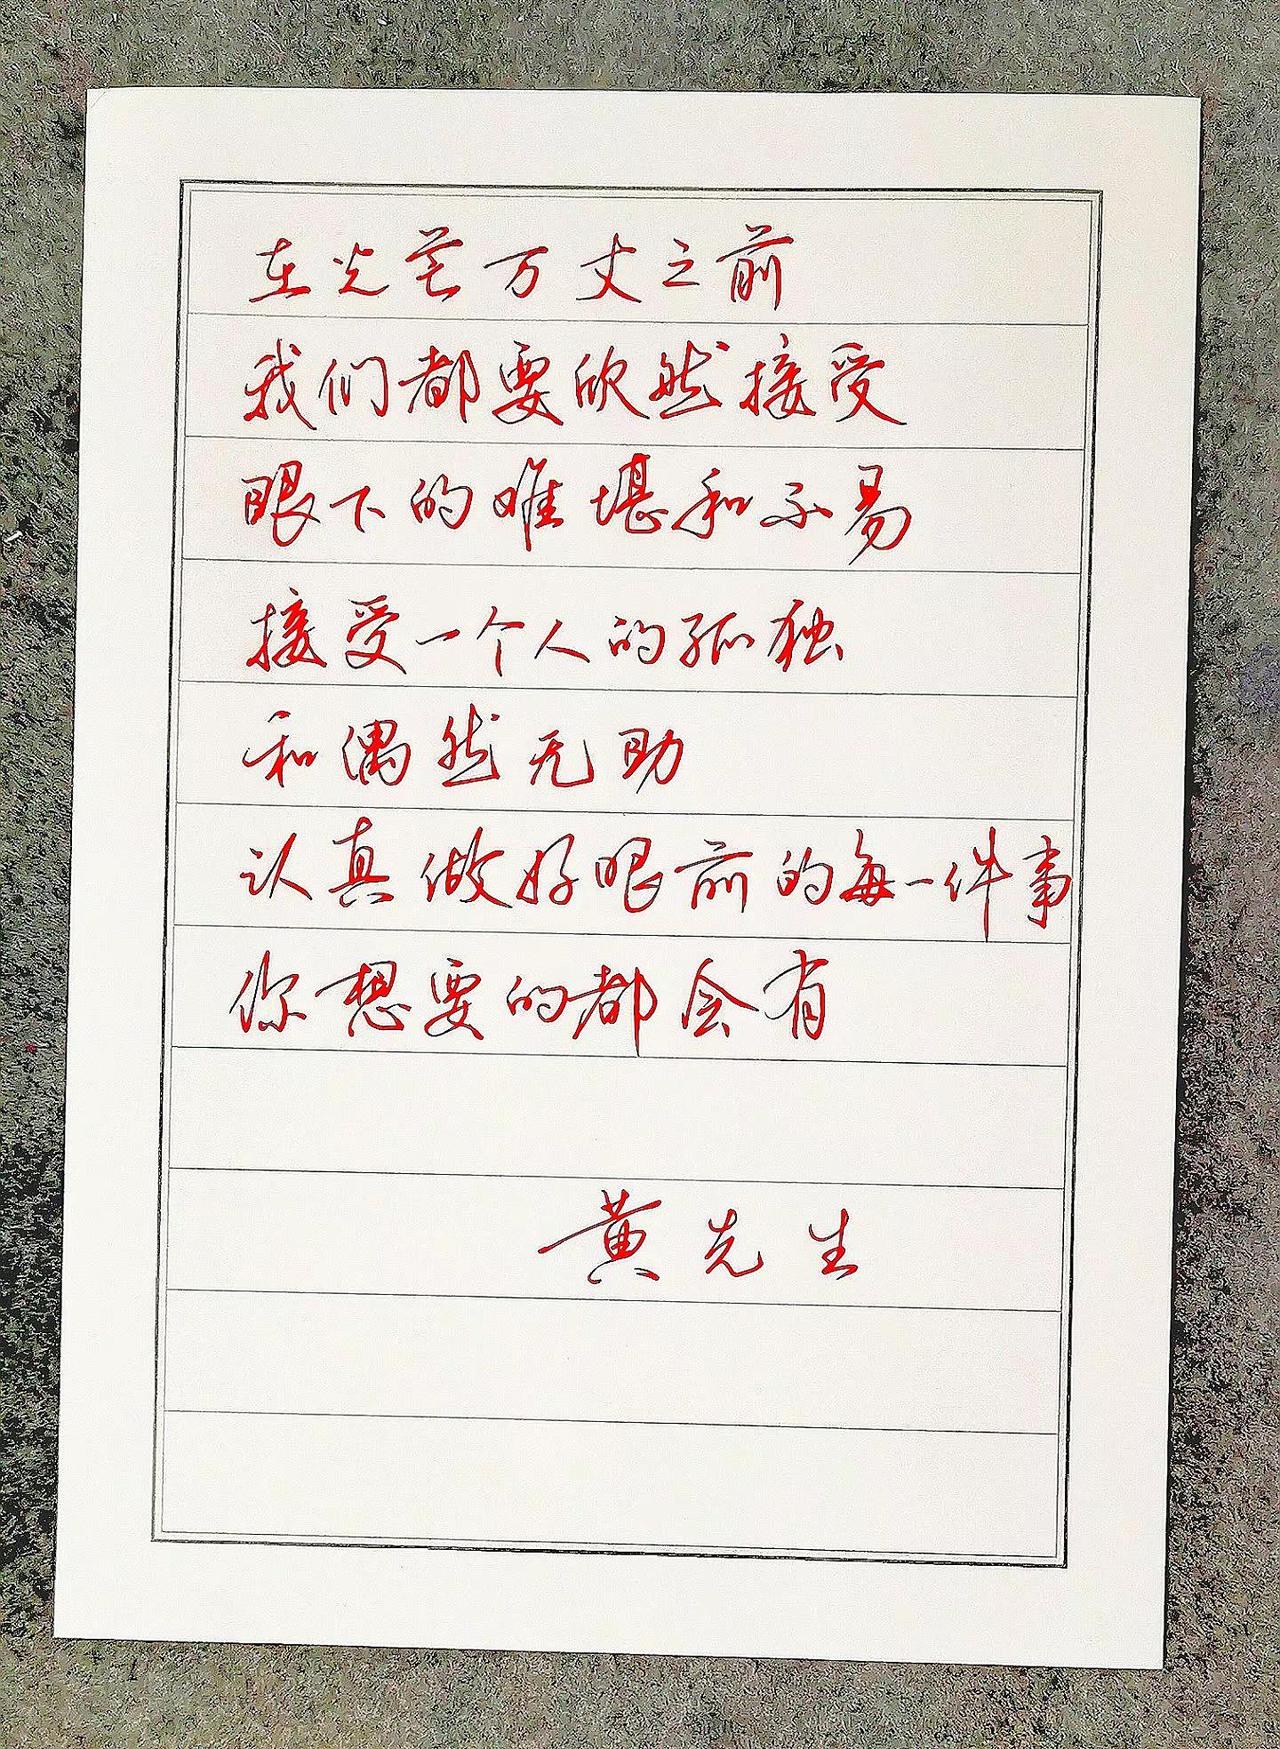 在光芒万丈之前
我们都要欣然接受
眼下的难堪和不易
接受一个人的孤独
和偶然无助
认真做好眼前的每一件事
你想要的都会有
黄先生